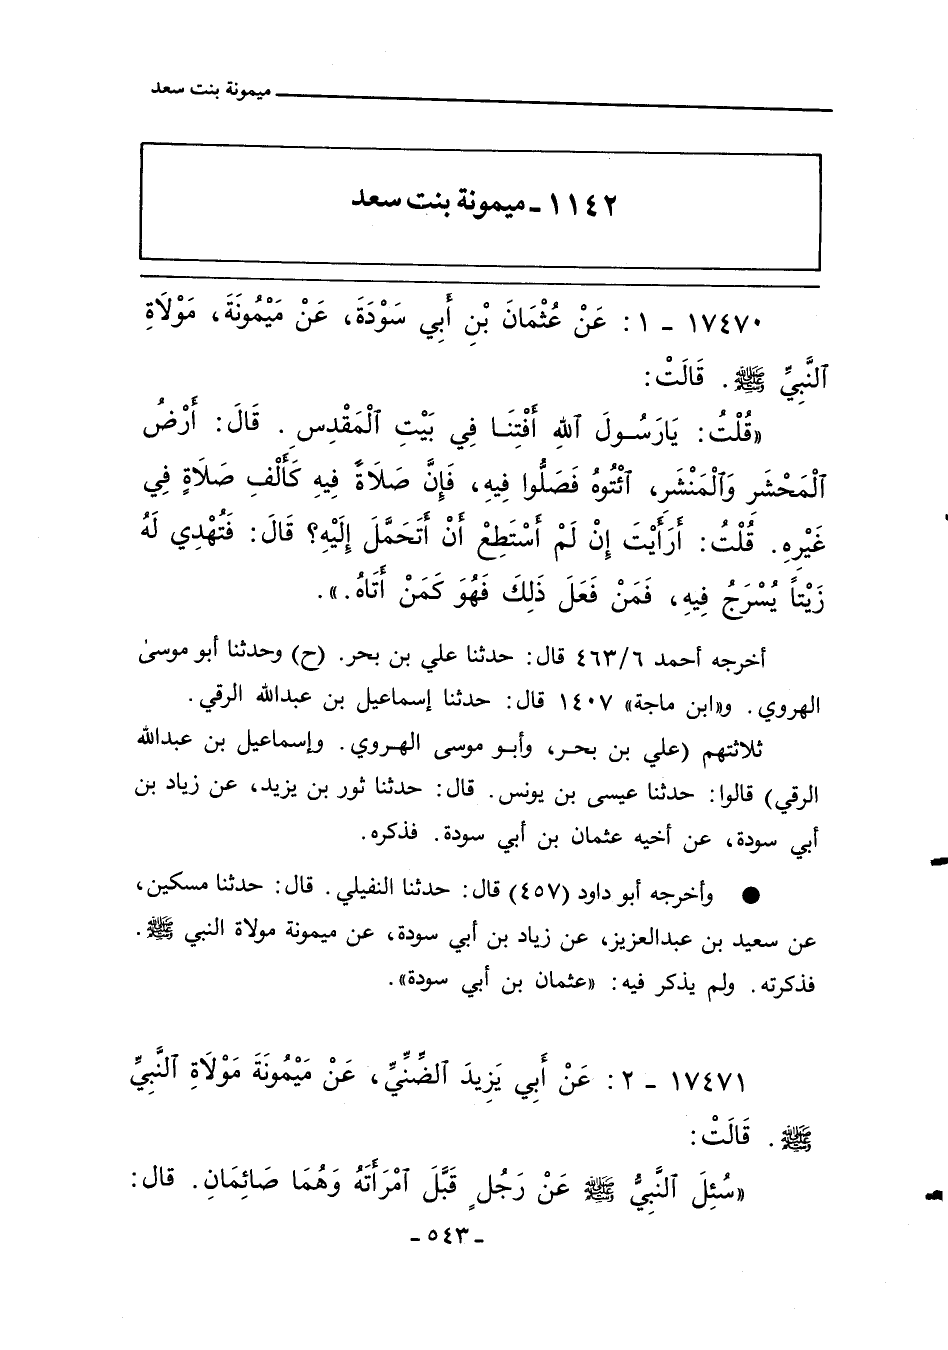 ميمونة بنت سعد
١١٤٢ ـ ميمونة بنت سعد
١٧٤٧٠ ـ ١ : عَنْ عُثْمَانَ بْنِ أَبِي سَوْدَةَ، عَنْ مَيْمُونَةَ، مَوْلَاةِ
ٱلنَّبِيِّ ﷺ . قَالَتْ:
«قُلْتُ: يَارَسُولَ ٱللهِ أَفْتِنَا فِي بَيْتِ ٱلْمَقْدِسِ . قَالَ: أَرْضُ
ٱلْمَحْشَرِ وَٱلْمَنْشَرِ، ٱئْتُوهُ فَصَلُّوا فِيهِ، فَإِنَّ صَلَاةً فِيهِ كَأَلْفِ صَلَاةٍ فِي
غَيْرِهِ. قُلْتُ: أَرَأَيْتَ إِنْ لَمْ أَسْتَطِعْ أَنْ أَتَحَمَّلَ إِلَيْهِ؟ قَالَ: فَتُهْدِي لَهُ
زَيْتاً يُسْرَجُ فِيهِ، فَمَنْ فَعَلَ ذَلِكَ فَهُوَ كَمَنْ أَتَاهُ.».
أخرجه أحمد ٤٦٣/٦ قال: حدثنا علي بن بحر. (ح) وحدثنا أبو موسىٰ
الهروي. و«ابن ماجة» ١٤٠٧ قال: حدثنا إسماعيل بن عبدالله الرقي.
ثلاثتهم (علي بن بحر، وأبو موسى الهروي. وإسماعيل بن عبدالله
الرقي) قالوا: حدثنا عيسى بن يونس. قال: حدثنا ثور بن يزيد، عن زياد بن
أبي سودة، عن أخيه عثمان بن أبي سودة. فذكره.
● وأخرجه أبو داود (٤٥٧) قال: حدثنا النفيلي. قال: حدثنا مسكين،
عن سعيد بن عبدالعزيز، عن زياد بن أبي سودة، عن ميمونة مولاة النبي ﷺ.
فذكرته. ولم يذكر فيه: «عثمان بن أبي سودة».
١٧٤٧١ ـ ٢ : عَنْ أَبِي يَزِيدَ ٱلضِّنِّيِّ، عَنْ مَيْمُونَةَ مَوْلَاةِ ٱلنَّبِيِّ
ﷺ . قَالَتْ:
«سُئِلَ ٱلنَّبِيُّ ﷺ عَنْ رَجُلٍ قَبَّلَ ٱمْرَأَتَهُ وَهُمَا صَائِمَانِ. قال:
ـ ٥٤٣ ـ